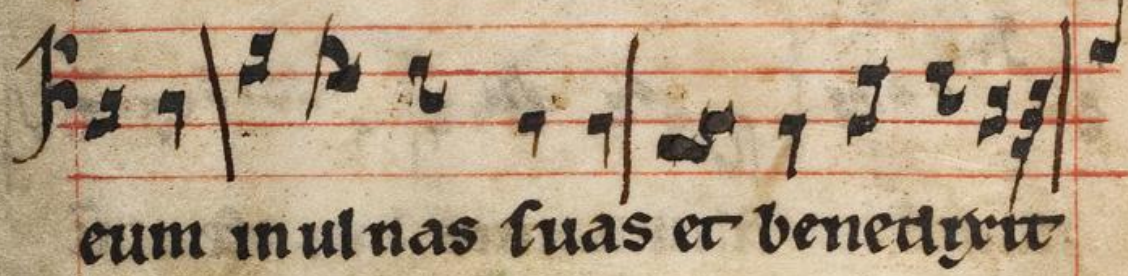 eum in ulnas suas et benedixit